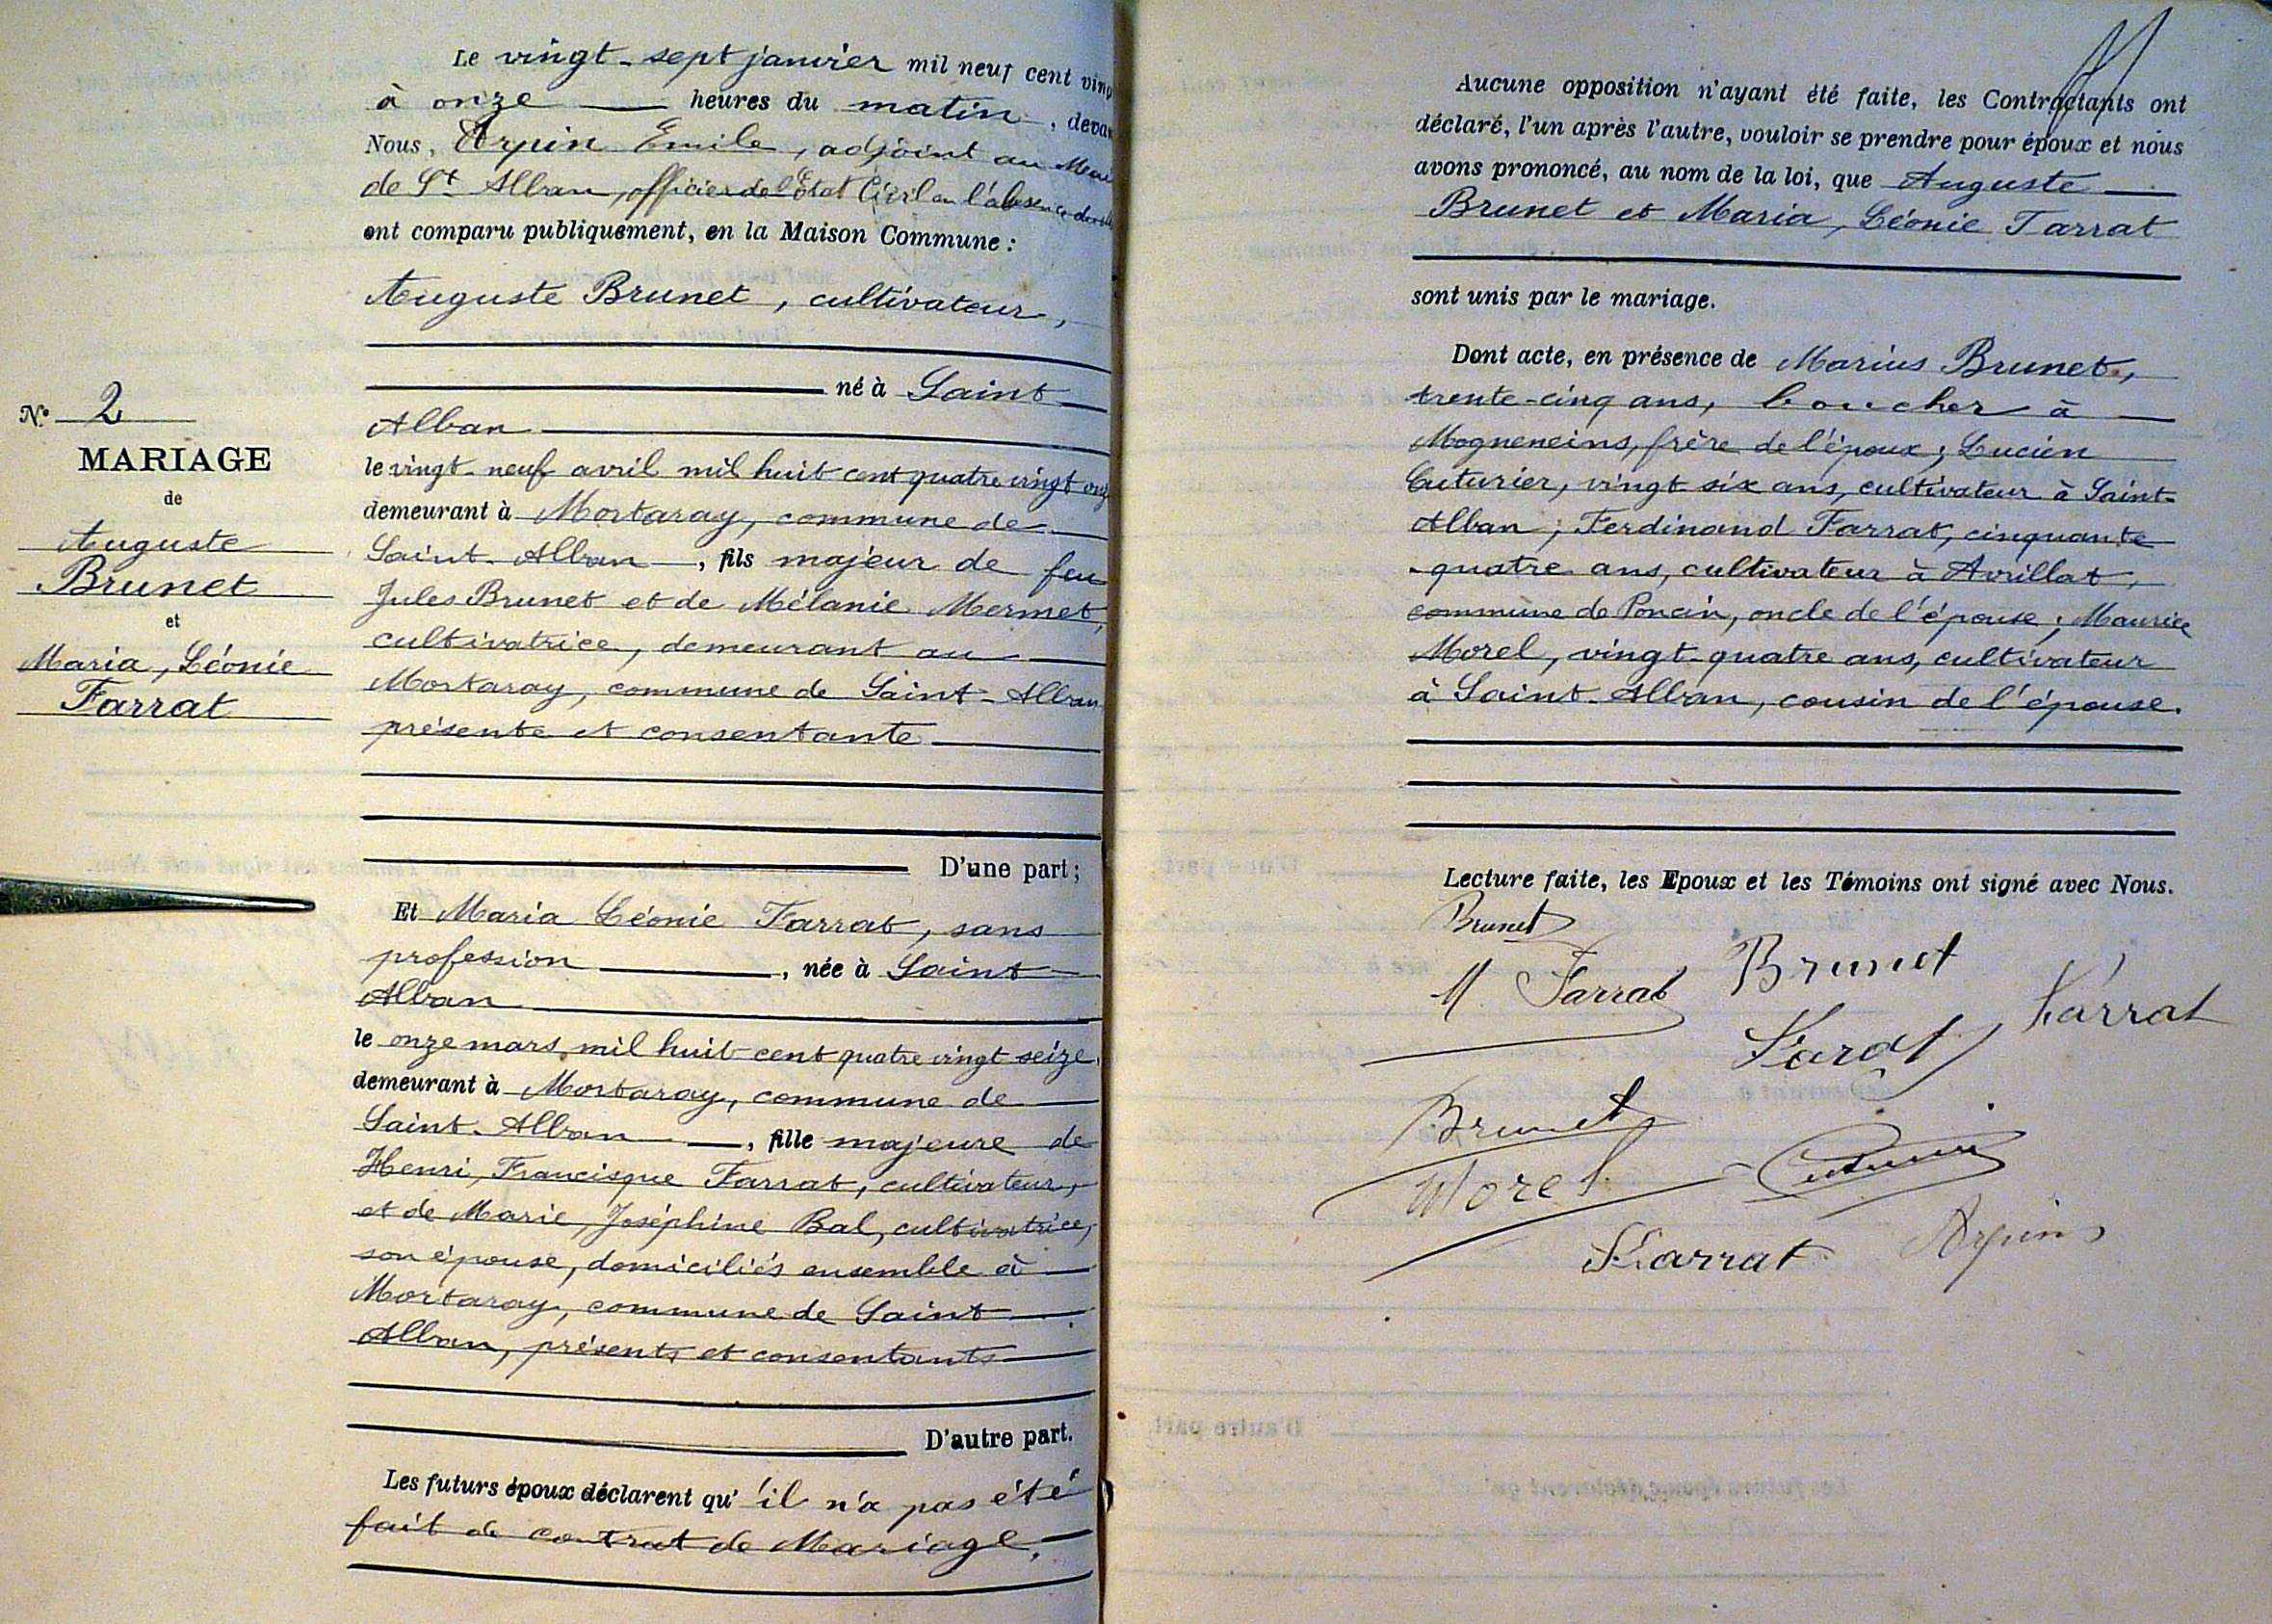 Le vingt-sept janvier mil neuf cent
à onze heures du matin, devant
Nous, Arpin Emile, adjoint au Maire
de St Alban, officier de l'Etat Civil en l'absence
ont comparu publiquement, en la Maison Commune :
Auguste Brunet, cultivateur,
né à Saint
Nº 2
Alban
MARIAGE
le vingt-neuf avril mil huit cent quatre vingt
de
demeurant à Mortaray, commune de
Auguste
Saint-Alban, fils majeur de feu
Brunet
Jules Brunet et de Mélanie Mermet,
et
cultivatrice, demeurant au
Maria, Léonie
Mortaray, commune de Saint-Alban
Farrat
présente et consentante
D'une part ;
Et Maria Léonie Farrat, sans
profession, née à Saint
Alban
le onze mars mil huit cent quatre vingt seize,
demeurant à Mortaray, commune de
Saint-Alban, fille majeure de
Henri, Francisque Farrat, cultivateur,
et de Marie, Joséphine Bal, cultivatrice,
son épouse, domiciliés ensemble à
Mortaray, commune de Saint
Alban, présents et consentants
D'autre part.
Les futurs époux déclarent qu'il n'a pas été
fait de contrat de Mariage.
Aucune opposition n'ayant été faite, les Contractants ont
déclaré, l'un après l'autre, vouloir se prendre pour époux et nous
avons prononcé, au nom de la loi, que Auguste
Brunet et Maria, Léonie Farrat
sont unis par le mariage.
Dont acte, en présence de Marius Brunet,
trente-cinq ans, boucher à
Mogneneins, frère de l'époux ; Lucien
Cuturier, vingt six ans, cultivateur à Saint-
Alban ; Ferdinand Farrat, cinquante
-quatre ans, cultivateur à Avrillat,
commune de Poncin, oncle de l'épouse ; Maurice
Morel, vingt-quatre ans, cultivateur
à Saint-Alban, cousin de l'épouse.
Lecture faite, les Epoux et les Témoins ont signé avec Nous.
Brunet
M Farrat Brunet Farrat
Brunet
Morel Cuturier
Farrat Arpin